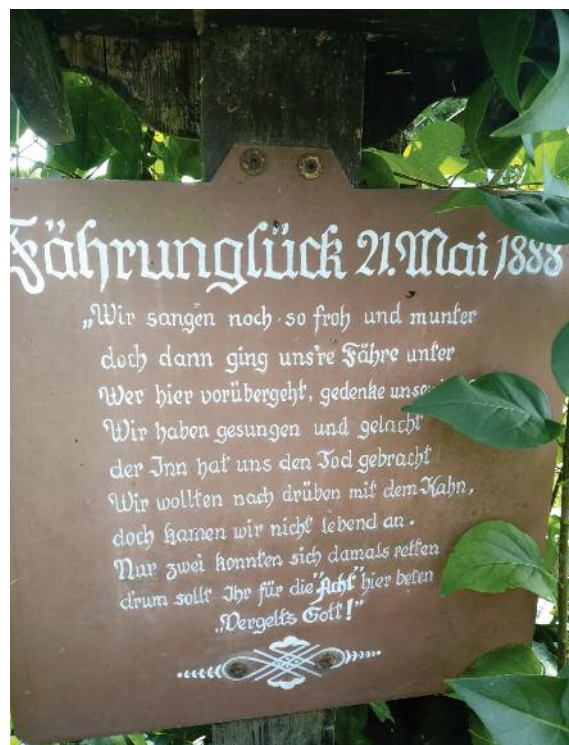 Fährunglück 21. Mai 1888
„Wir sangen noch so froh und munter
doch dann ging uns're Fähre unter
Wer hier vorübergeht, gedenke
Wir haben gesungen und gelacht
der Inn hat uns den Tod gebracht
Wir wollten nach drüben mit dem Kahn,
doch kamen wir nicht lebend an.
Nur zwei konnten sich damals retten
drum sollt Ihr für die "Acht" hier beten
„Vergelts Gott!"